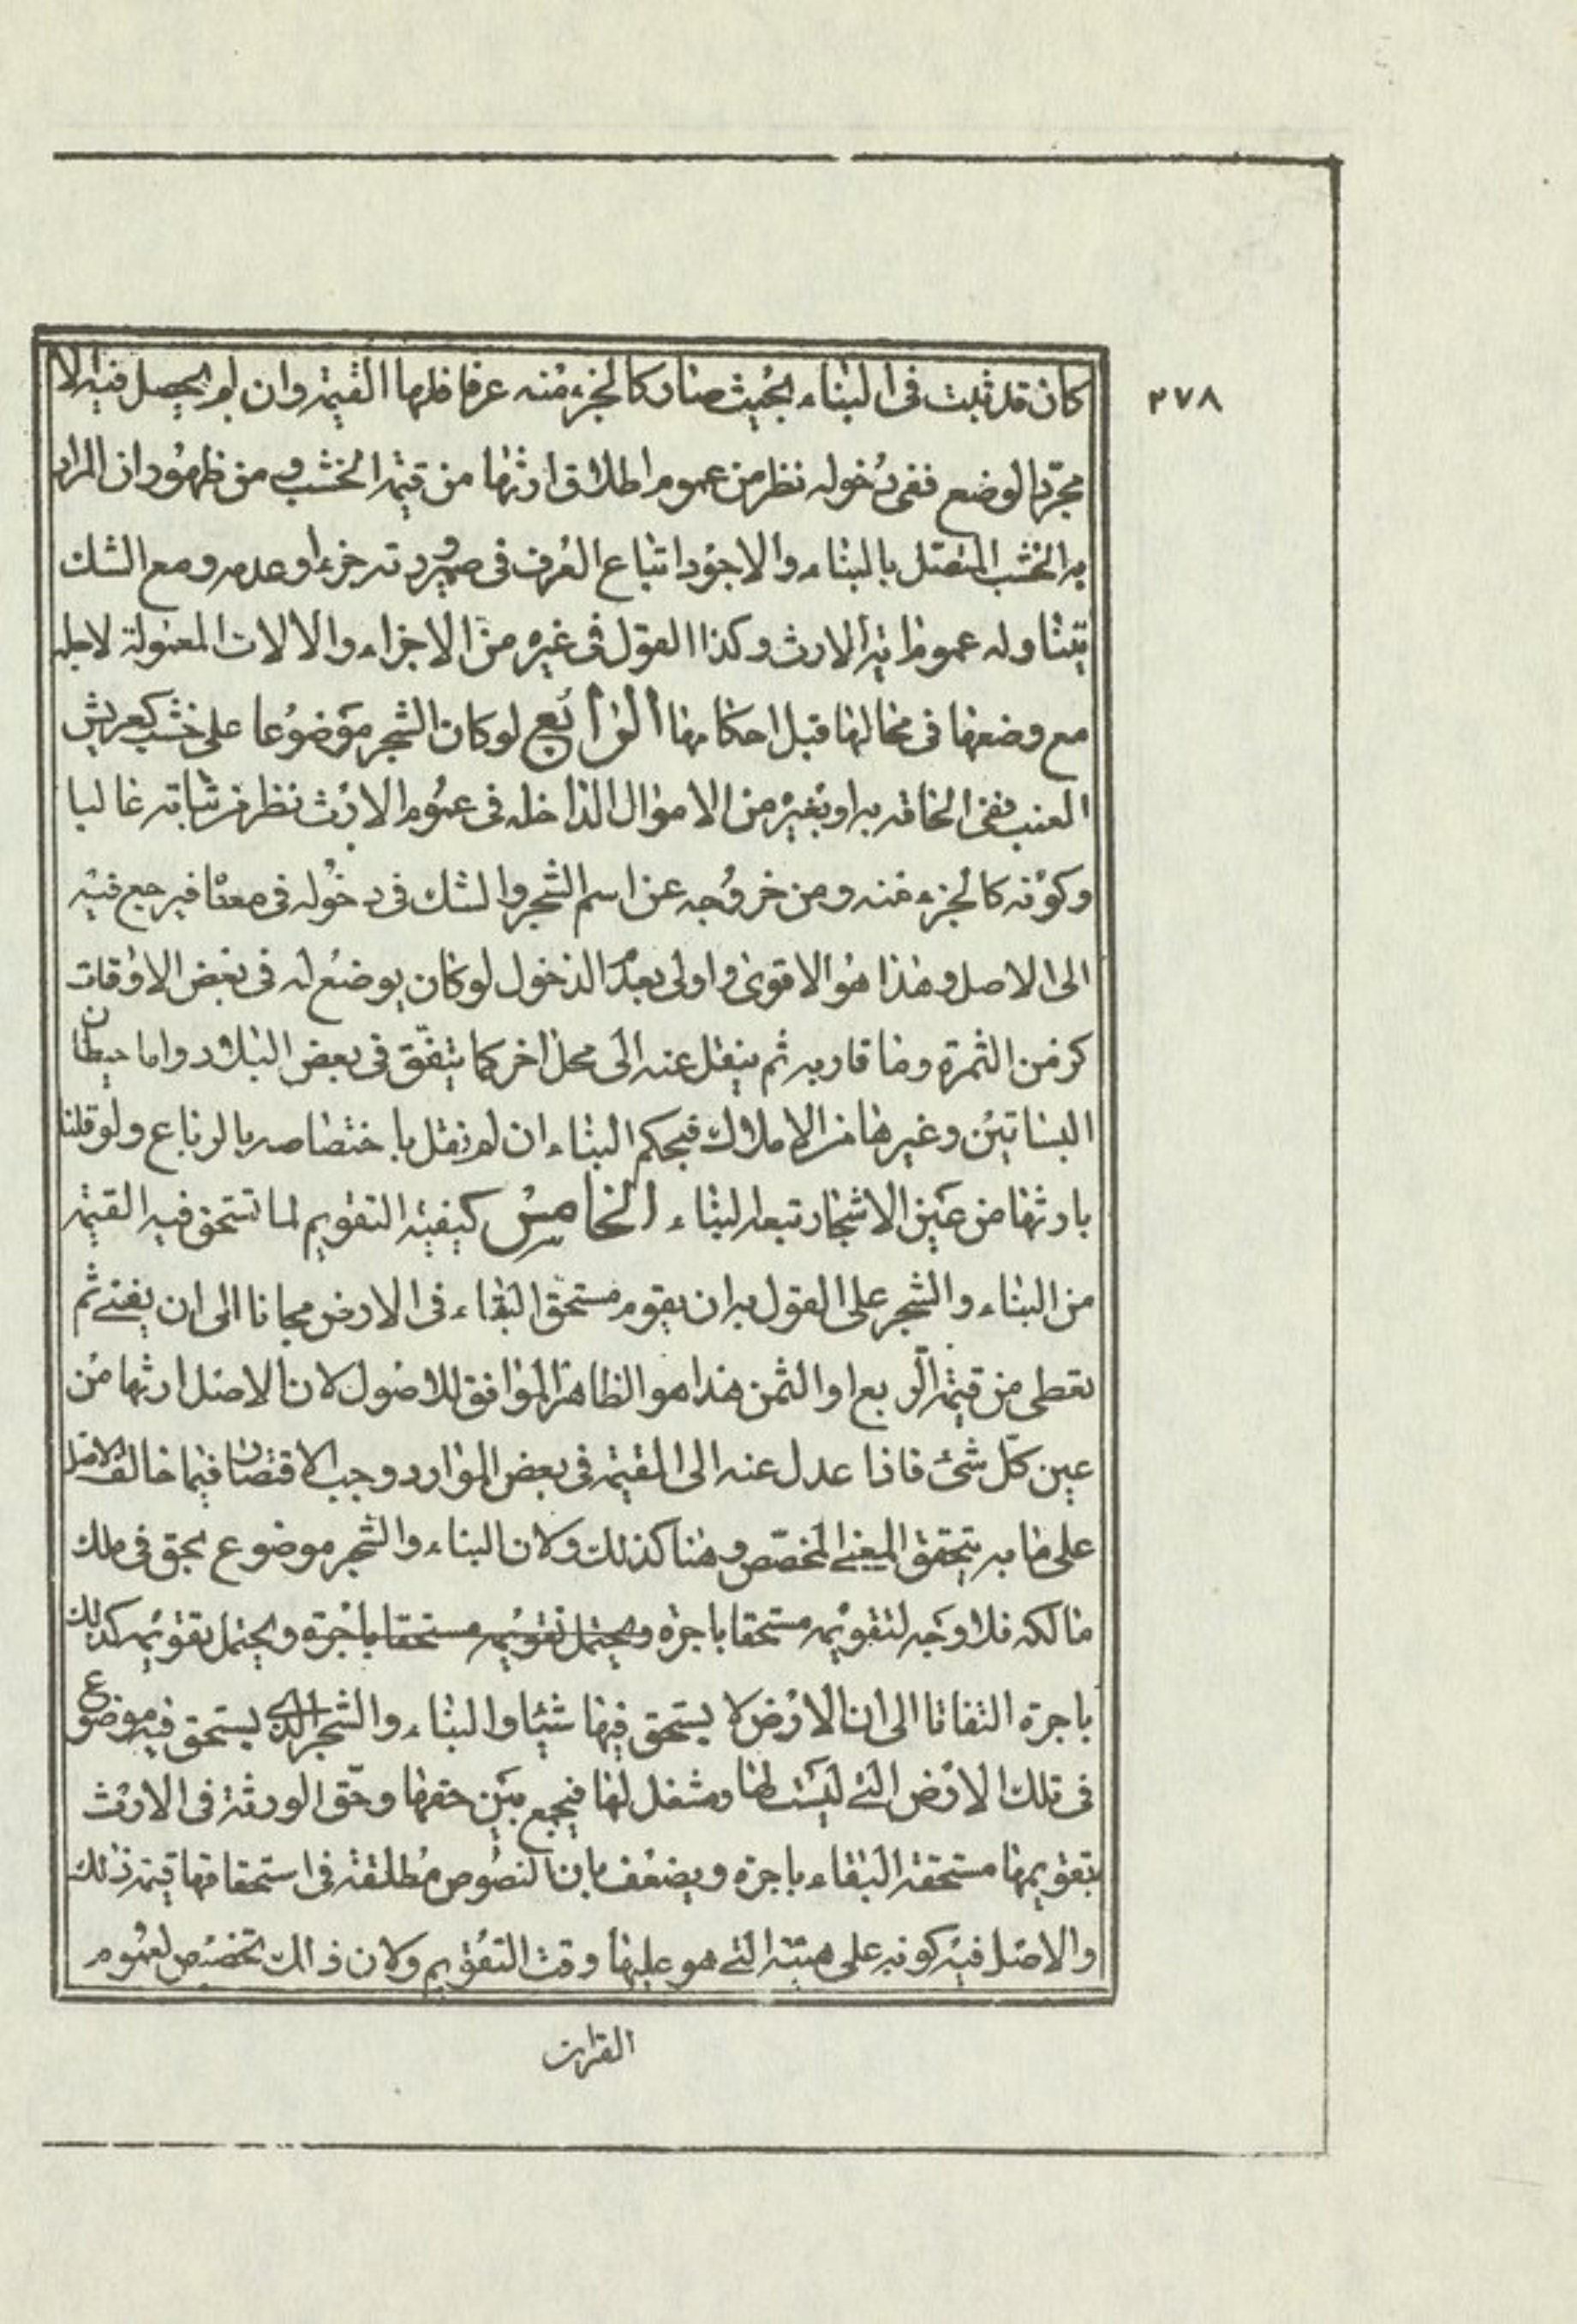 ٢٧٨
كان قد ثبت فى البناء بحيث صار كالجزء منه عرفا فلها القيمة وان لم يحصل فيه الا
مجرد الوضع ففى دخوله نظر من عموم اطلاق ارثها من قيمة الخشب و من ظهور ان المراد
به الخشب المتصل بالبناء والاجود اتباع العرف فى صيرورته جزءا وعدمه ومع الشك
يتناوله عموم اية الارث وكذا القول فى غيره من الاجزاء والالات المعمولة لاجله
مع وضعها فى محالها قبل احكامها الرابع لو كان الشجر موضوعا على خشب كعريش
العنب ففى الحاقه به او بغيره من الاموال الداخلة فى عموم الارث نظر من ثباته غالبا
وكونه كالجزء منه ومن خروجه عن اسم الشجر والشك فى دخوله فى معناه فيرجع فيه
الى الاصل وهذا هو الاقوى واولى بعدم الدخول لو كان يوضع له فى بعض الاوقات
كزمن الثمرة وما قاربه ثم ينقل عنه الى محل اخر كما يتفق فى بعض البلاد واما حيطان
البساتين وغيرها من الاملاك فبحكم البناء ان لم نقل باختصاصه بالرباع ولو قلنا
بارثها من عين الاشجار تبعا للبناء الخامس كيفية التقويم لما تستحق فيه القيمة
من البناء والشجر على القول به ان يقوم مستحق البقاء فى الارض مجانا الى ان يفنى ثم
تعطى من قيمته الربع او الثمن هذا هو الظاهر الموافق للاصول لان الاصل ارثها من
عين كل شئ فاذا عدل عنه الى القيمة فى بعض الموارد وجب الاقتصار فيما خالف الاصل
على ما به يتحقق المعنى المخصص وهنا كذلك ولان البناء والشجر موضوع بحق فى ملك
مالكه فلا وجه لتقويمه مستحقا باجرة ويحتمل تقويمه مستحقا باجرة ويحتمل تقويمه كذلك
باجرة التفاتا الى ان الارض لا يستحق فيها شيئا والبناء والشجر الذى يستحق فيه موضوع
فى تلك الارض التى ليست لها ومشغل لها فيجمع بين حقها وحق الورثة فى الارث
بتقويمها مستحقة البقاء باجرة ويضعف بان النصوص مطلقة فى استحقاقها قيمة ذلك
والاصل فيه كونه على هيئته التى هو عليها وقت التقويم ولان ذالك تخصيص لعموم
القرات